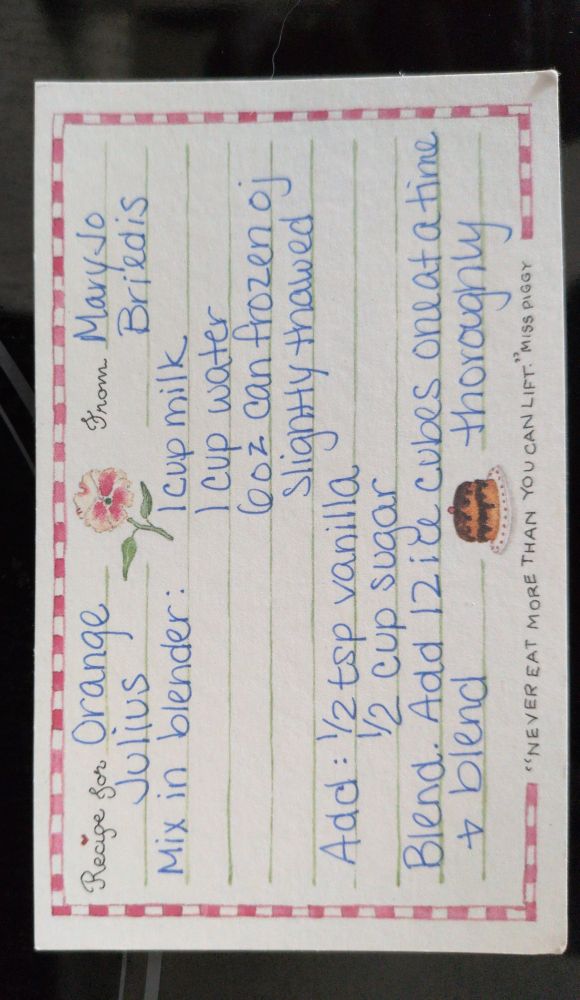 Recipe for Orange From Mary Jo
Julius Briedis
Mix in blender: 1 cup milk
1 cup water
6 oz can frozen oj
slightly thawed
Add: 1/2 tsp vanilla
1/2 cup sugar
Blend. Add 12 ice cubes one at a time
+ blend thoroughly
"NEVER EAT MORE THAN YOU CAN LIFT." MISS PIGGY